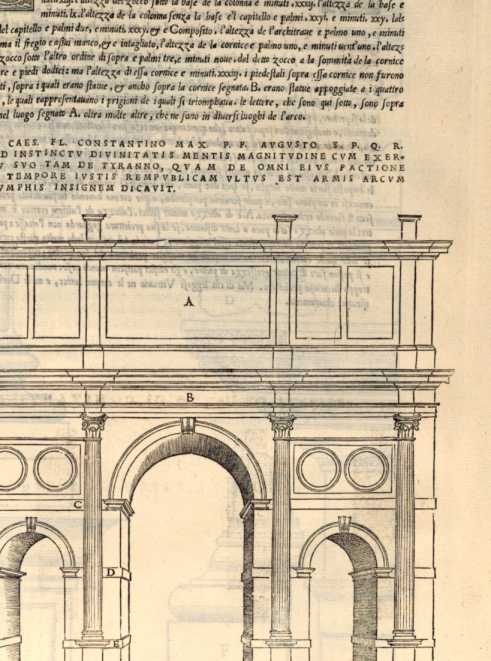 la base della colonna e minuti, xxxiij, l'altezza de la base e
minuti. ix. l'altezza de la colonna senza la base e'l capitello e palmi. xxyi. e minuti. xxy. lals
del capitello e palmi due, e minuti. xxxiij, & e Composito. l'altezza de l'architraue e palmo uno, e minuti
ma il fregio e assai manco, & e intagliato, l'altezza de la cornice e palmo uno, e minuti uent'uno. l'altezz
zocco sotto l'altro ordine di sopra e palmi tre, e minuti noue. dal detto zocco a la sommità de la cornice
re e piedi dodici: ma l'altezza di essa cornice e minuti. xxxiiij. i piedestali sopra essa cornice non furono
ti, sopra i quali erano statue, et ancho sopra la cornice segnata. B. erano statue appoggiate a i quattro
, le quali rappresentauano i prigioni de i quali si triomphaua. le lettere, che sono qui sotto, sono sopra
nel luogo segnato A. oltra molte altre, che ne sono in diuersi luoghi de l'arco.
CAES. FL. CONSTANTINO MAX. P. F. AVGVSTO S. P. Q. R.
D INSTINCTV DIVINITATIS MENTIS MAGNITVDINE CVM EXER-
V SVO TAM DE TYRANNO, QVAM DE OMNI EIVS FACTIONE
TEMPORE IVSTIS REMPVBLICAM VLTVS EST ARMIS ARCVM
VMPHIS INSIGNEM DICAVIT.
A
B
C
D
E